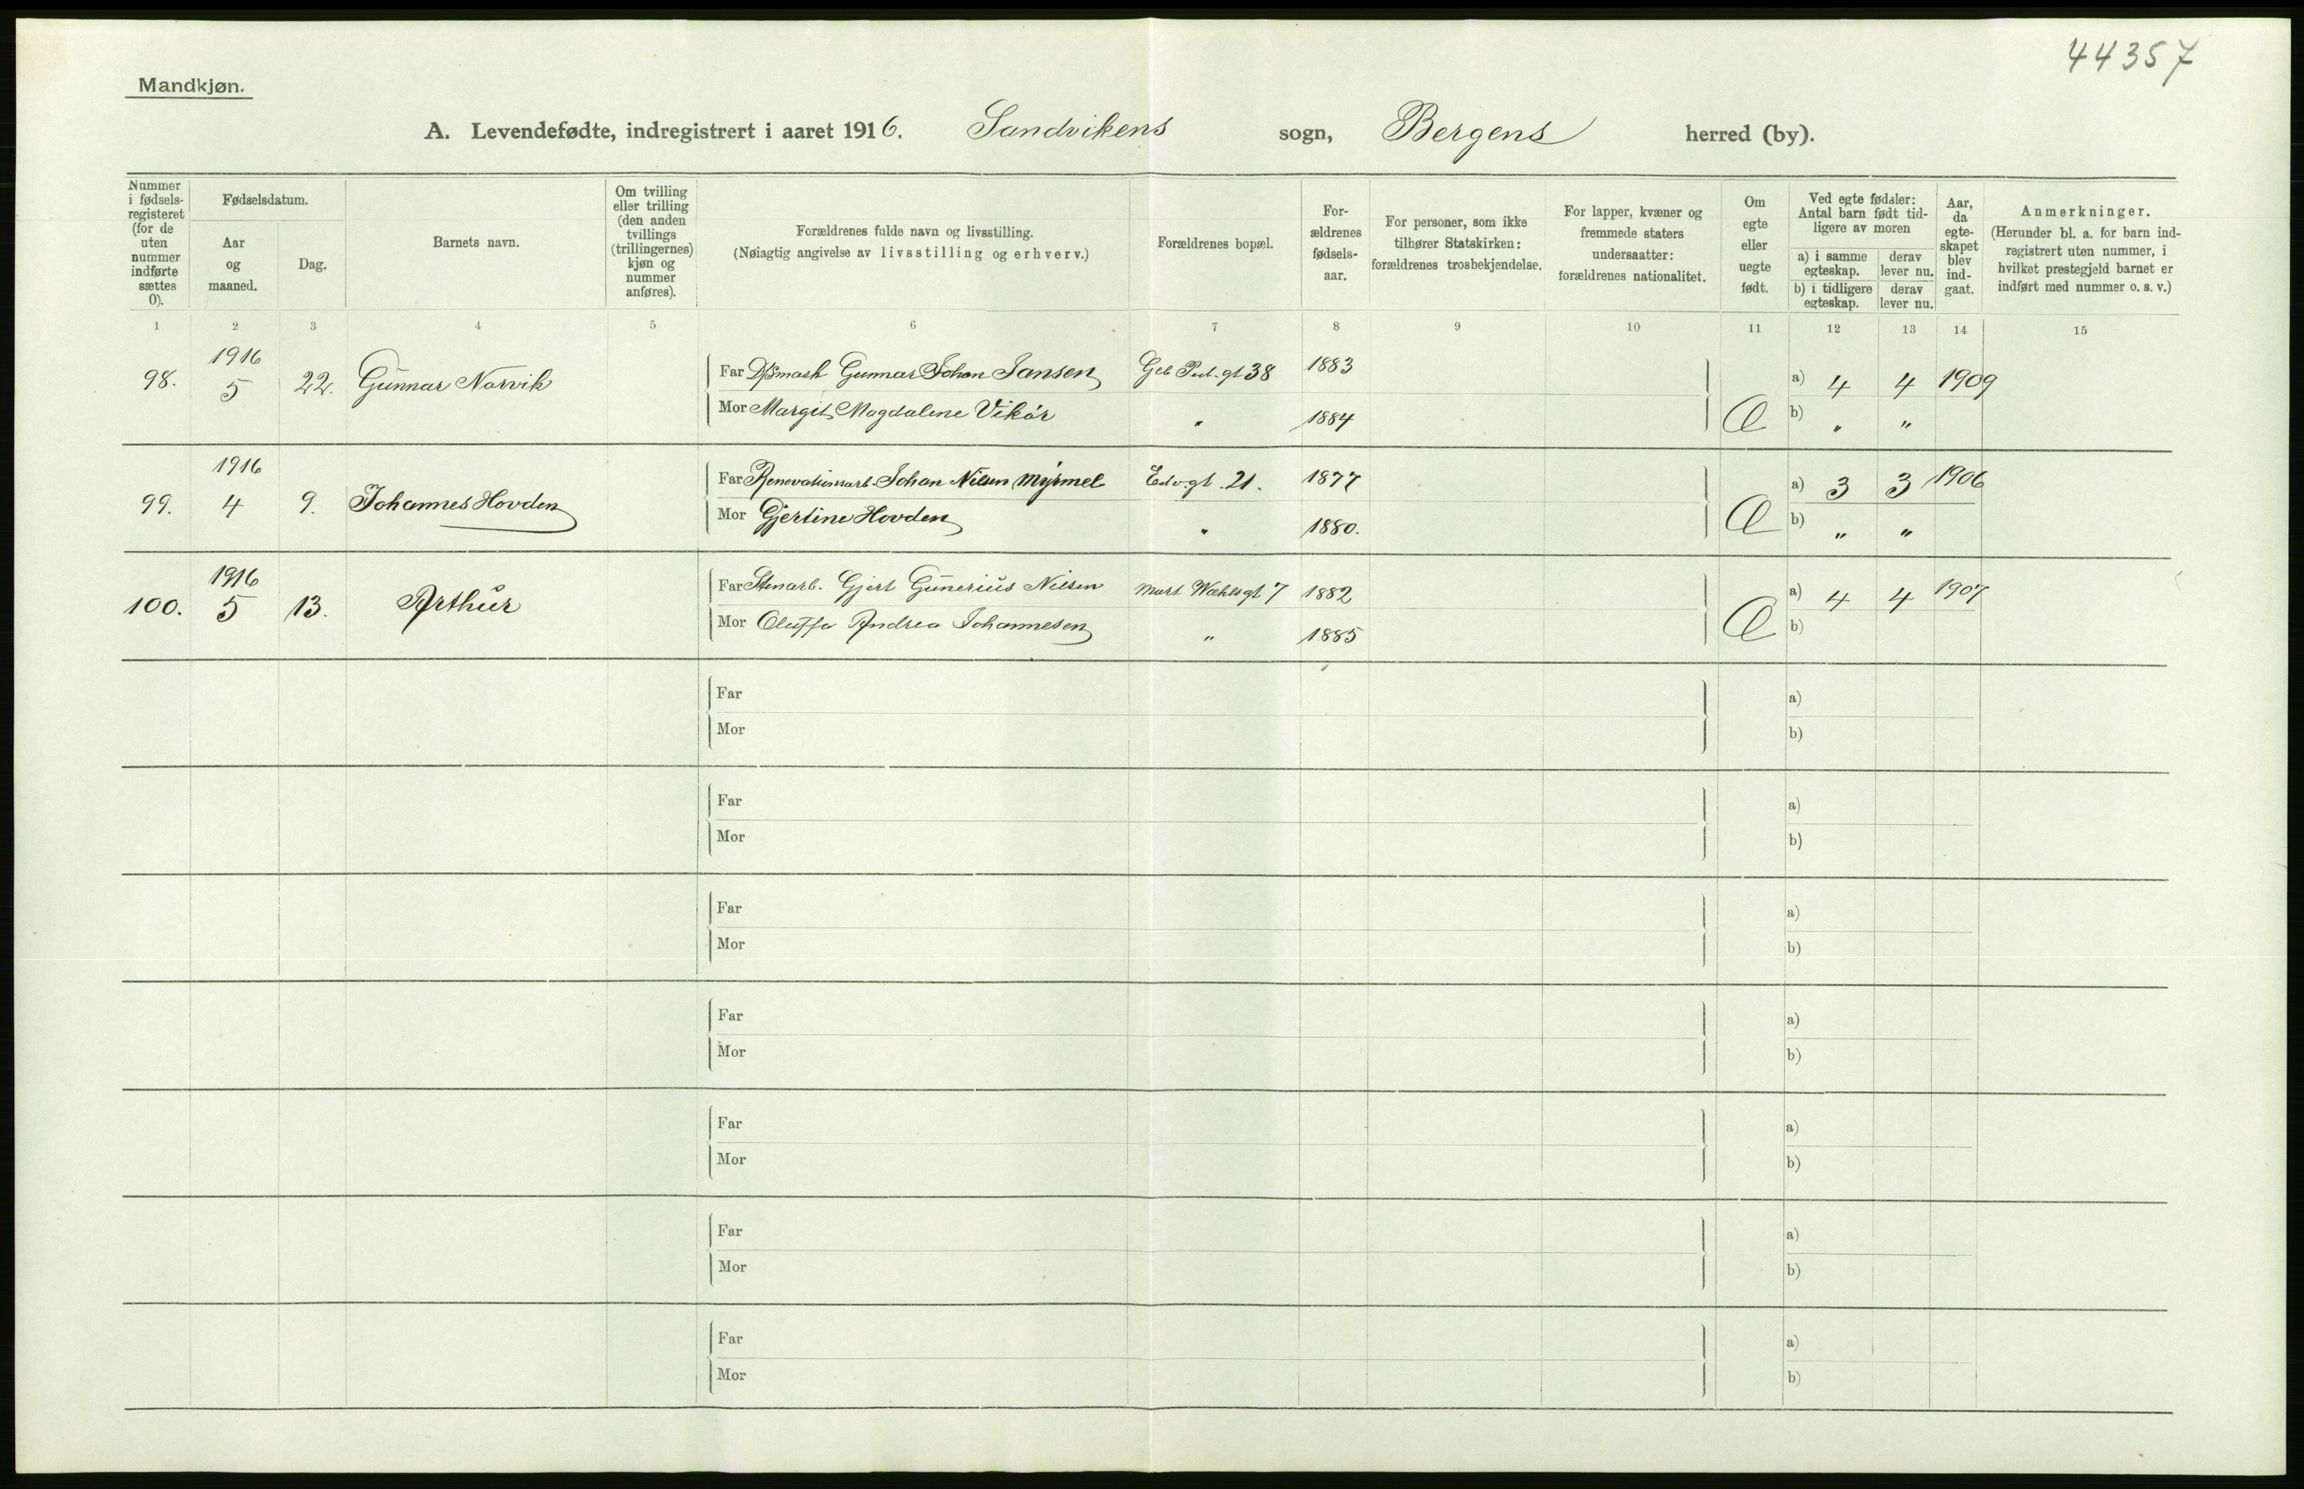 44357
Mandkjøn.
A. Levendefødte, indregistrert i aaret 1916. Sandvikens sogn, Bergens herred (by).
Nummer i fødsels-registeret (for de uten nummer indførte sættes 0).
Fødselsdatum.
Aar og maaned.
Dag.
Barnets navn.
Om tvilling eller trilling (den anden tvillings (trillingernes) kjøn og nummer anføres).
Forældrenes fulde navn og livsstilling.
(Nøiagtig angivelse av livsstilling og erhverv.)
Forældrenes bopæl.
For-ældrenes fødsels-aar.
For personer, som ikke tilhører Statskirken: forældrenes trosbekjendelse.
For lapper, kvæner og fremmede staters undersaatter: forældrenes nationalitet.
Om egte eller uegte født.
Ved egte fødsler: Antal barn født tid-ligere av moren
a) i samme egteskap.
derav lever nu.
b) i tidligere egteskap.
derav lever nu.
Aar, da egte-skapet blev ind-gaat.
Anmerkninger.
(Herunder bl. a. for barn ind-registrert uten nummer, i hvilket prestegjeld barnet er indført med nummer o. s. v.)
1 2 3 4 5 6 7 8 9 10 11 12 13 14 15
98. 1916 5 22. Gunnar Norvik
Far D/Smask Gunnar Johan Jansen Geb Ped.gt 38 1883 a) 4 4 1909
Mor Margit Magdalene Vikør " 1884 Æ b) " "
99. 1916 4 9. Johannes Hovden
Far Renovationsarb. Johan Nilsen Myrmel Edv.gt. 21. 1877 a) 3 3 1906
Mor Gjertine Hovden " 1880. Æ b) " "
100. 1916 5 13. Arthur
Far Stenarb. Gjert Gunerius Nilsen Mart Wahlsgt 7 1882 a) 4 4 1907
Mor Oluffa Andrea Johannesen " 1885 Æ b)
Far a)
Mor b)
Far a)
Mor b)
Far a)
Mor b)
Far a)
Mor b)
Far a)
Mor b)
Far a)
Mor b)
Far a)
Mor b)